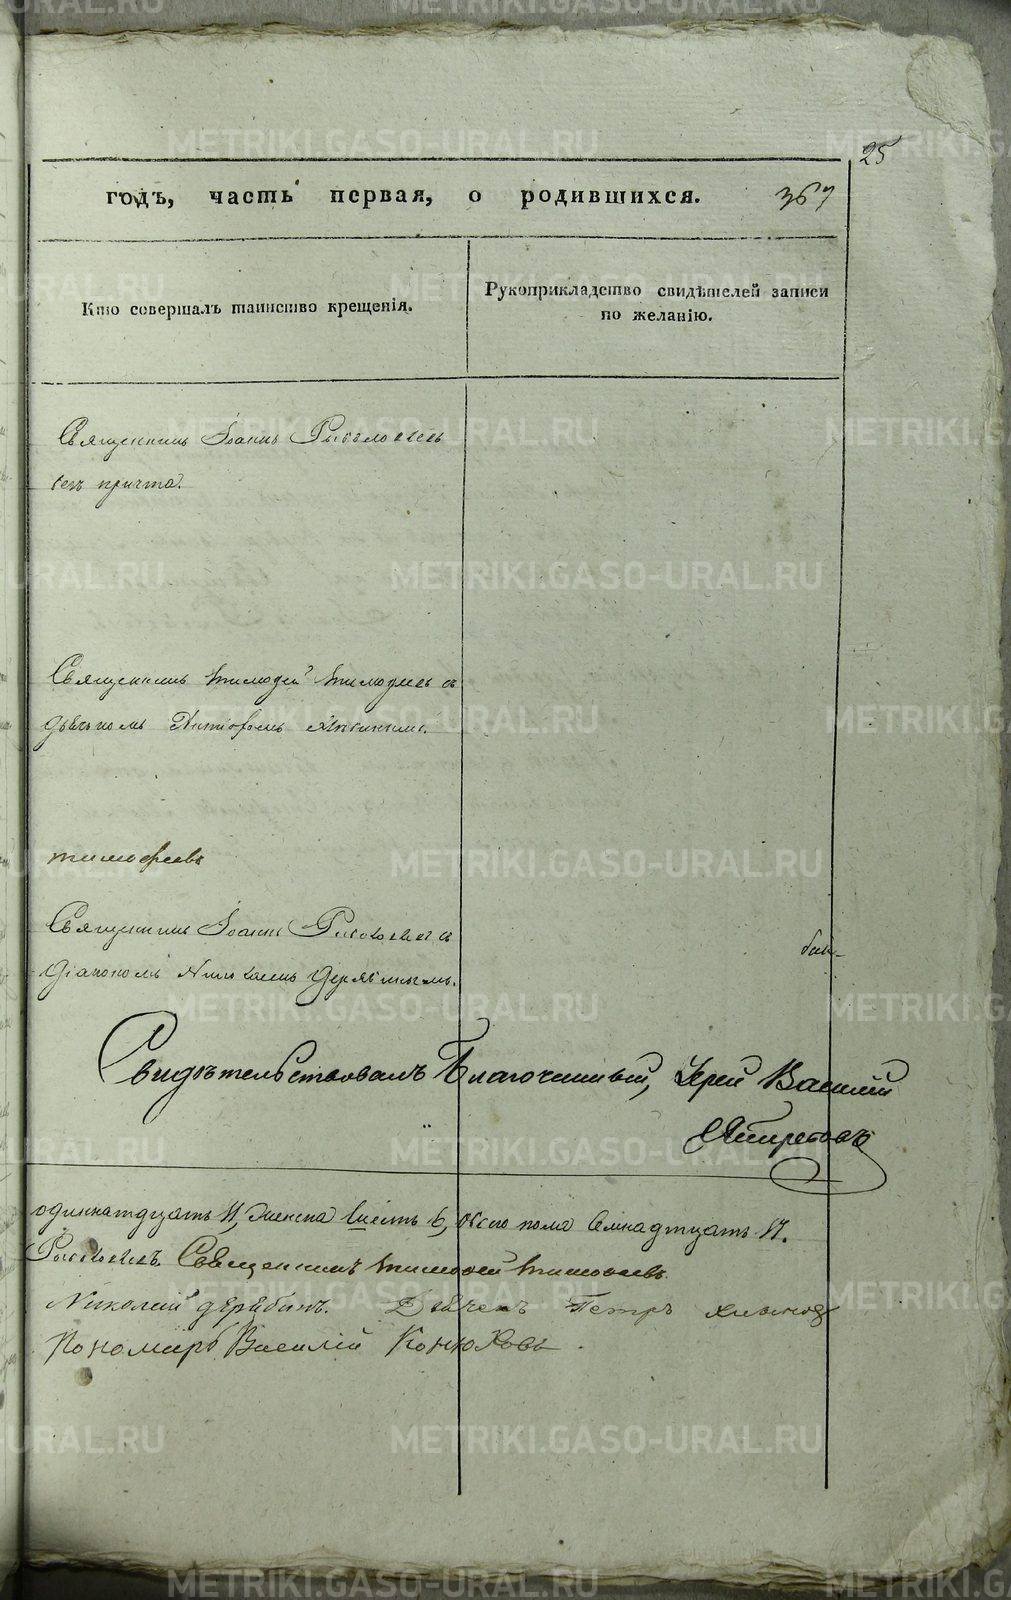 25
годъ, часть первая, о родившихся. 367
Кто совершалъ таинство крещенія.
Рукоприкладство свидѣтелей записи
по желанію.
Священникъ Іоаннъ
безъ причта.
Священникъ Тимофей Тимофеевъ съ
дьячкомъ Петромъ
тимофеевъ
Священникъ Іоаннъ съ
діакономъ Николаемъ Дерябинымъ.
Свидѣтельствовалъ Благочинный, Іерей Василій
одиннатдцать 11, женска шесть 6, обоего пола семнадтцать 17.
Священникъ тимофей тимофеевъ
Николай дерябинъ. Дьячекъ Петръ
Пономарь Василій Конюховъ.
METRIKI.GASO-URAL.RU